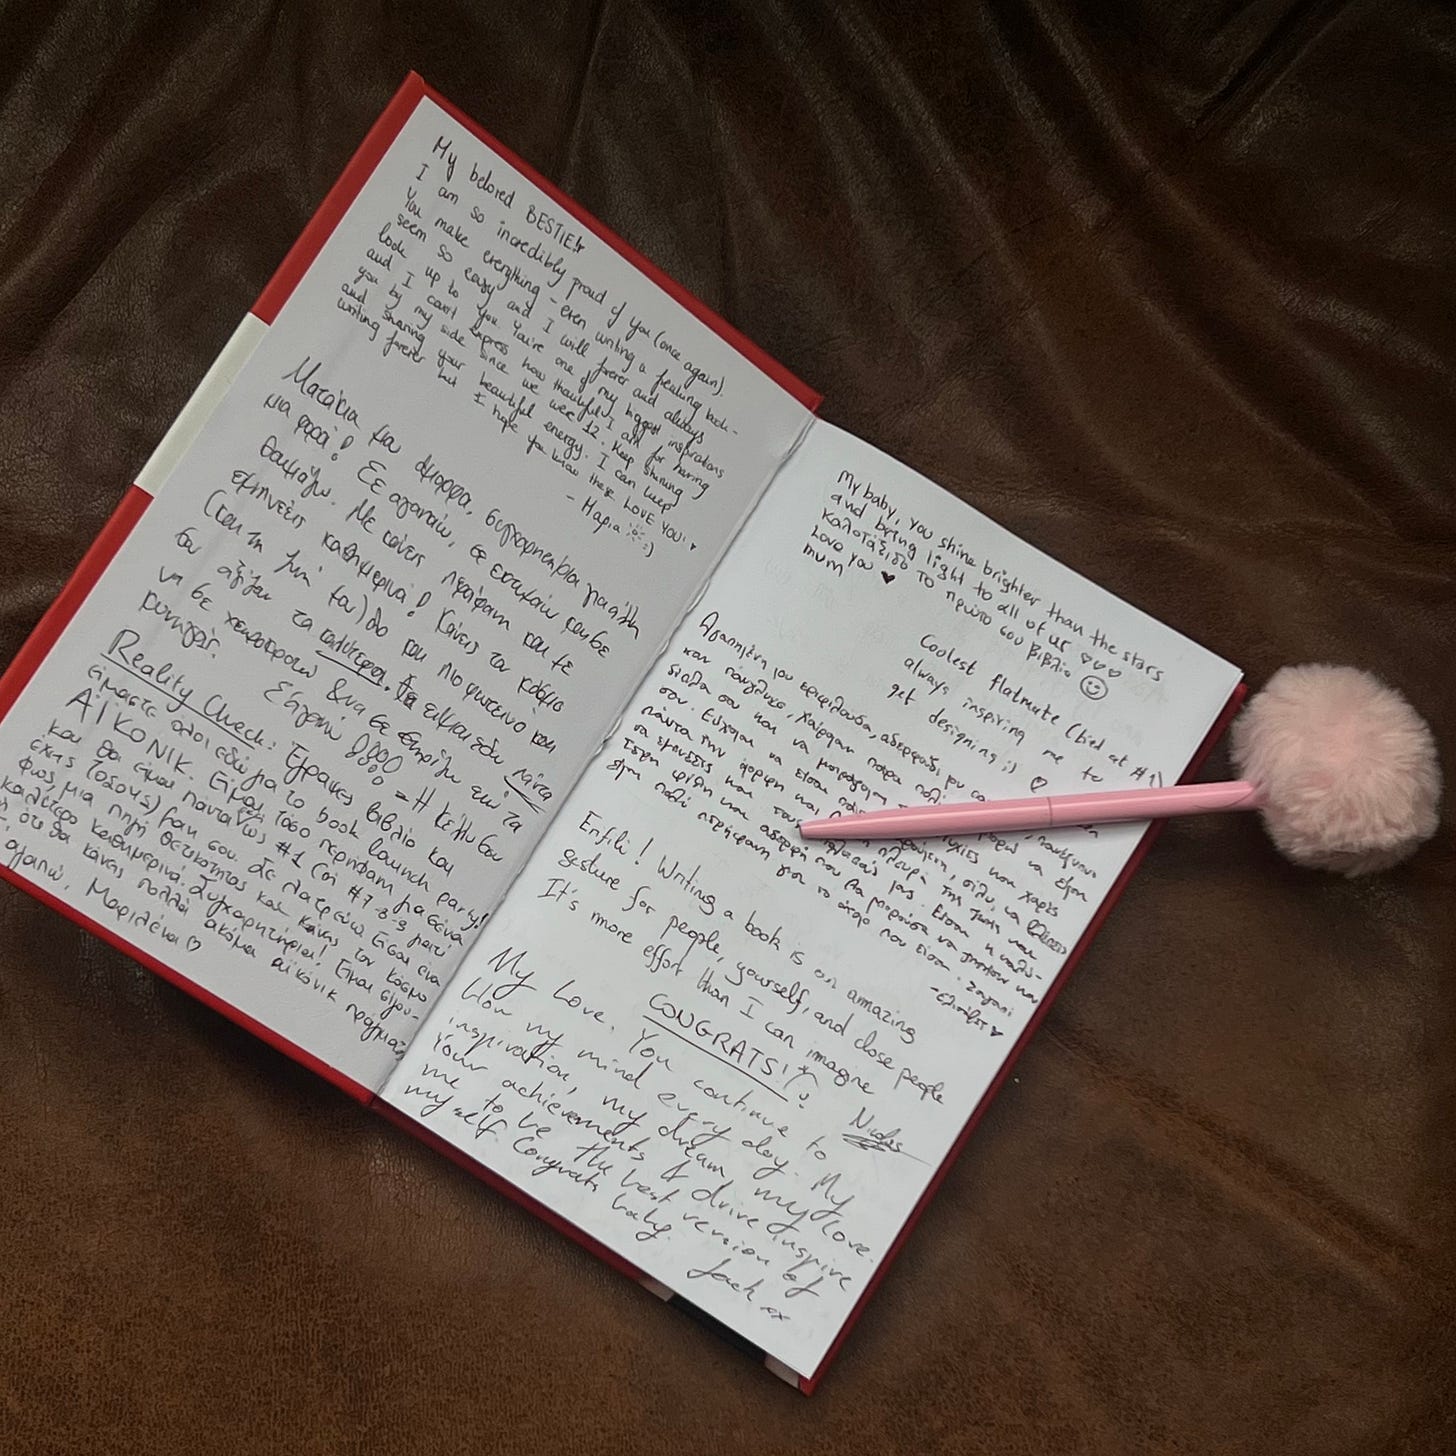 My beloved BESTIE!
I am so incredibly proud of you (once again).
You make everything - even writing a freaking book -
seem so easy and I will forever and always
look up to you. You're one of my biggest inspirations
and I can't express how thankful I am for having
you by my side since we were 12. Keep shining
and sharing your beautiful energy. I can keep
writing forever but I hope you know these LOVE YOU! ♥
- Μαρια :)
Ματάκια μου όμορφα, συγχαρητήρια για άλλη
μια φορά! Σε αγαπάω, σε εκτιμάω και σε
θαυμάζω. Με κάνεις περήφανη και με
εμπνέεις καθημερινά! Κάνεις τον κόσμο
(και τη ζωή του) πιο και πιο φωτεινό και
σου αξίζουν τα καλύτερα. Θα είμαι εδώ πάντα
να σε χειροκροτώ & να σε στηρίζω σε ό,τι
κυνηγάς.
Reality Check: Έγραψες βιβλίο και
είμαστε όλοι εδώ για το book launch party!
ΑΪΚΟΝΙΚ. Είμαι τόσο περήφανη για σένα
και θα είμαι πάντα ως #1 (or #7-8-9 γιατί
έχεις τόσους) fan σου. Σε λατρεύω. Είσαι ένα
φως, μια πηγή θετικότητας και κάνεις τον κόσμο
καλύτερο καθημερινά. Συγχαρητήρια! Είμαι σίγου-
ότι θα κάνεις πολλά ακόμα αϊκόνικ πράγματα
αγαπώ, Μαριλένα ♡
My baby, you shine brighter than the stars
and bring light to all of us ♡♡♡
Καλοτάξιδο το πρώτο σου βιβλίο ☺
Love you ♥
mum
Coolest flatmate (tied at #1)
always inspiring me to
get designing ;) ♡
Αγαπημένη μου
και
δίπλα σου και να
σου. Εύχομαι να είσαι
πάντα την όμορφη και
να εμπνέεις και τους
αδερφή που θα μπορούσα να ζητήσω και
είμαι πολύ περήφανη για το άτομο που είσαι.
Enfili! Writing a book is an amazing
gesture for people, yourself, and close people
It's more effort than I can imagine
CONGRATS!
Nicolas
My Love. You continue to
blow my mind every day. My
inspiration, my dream, my love.
Your achievements & drive inspire
me to be the best version of
myself. Congrats baby.
Jack xx